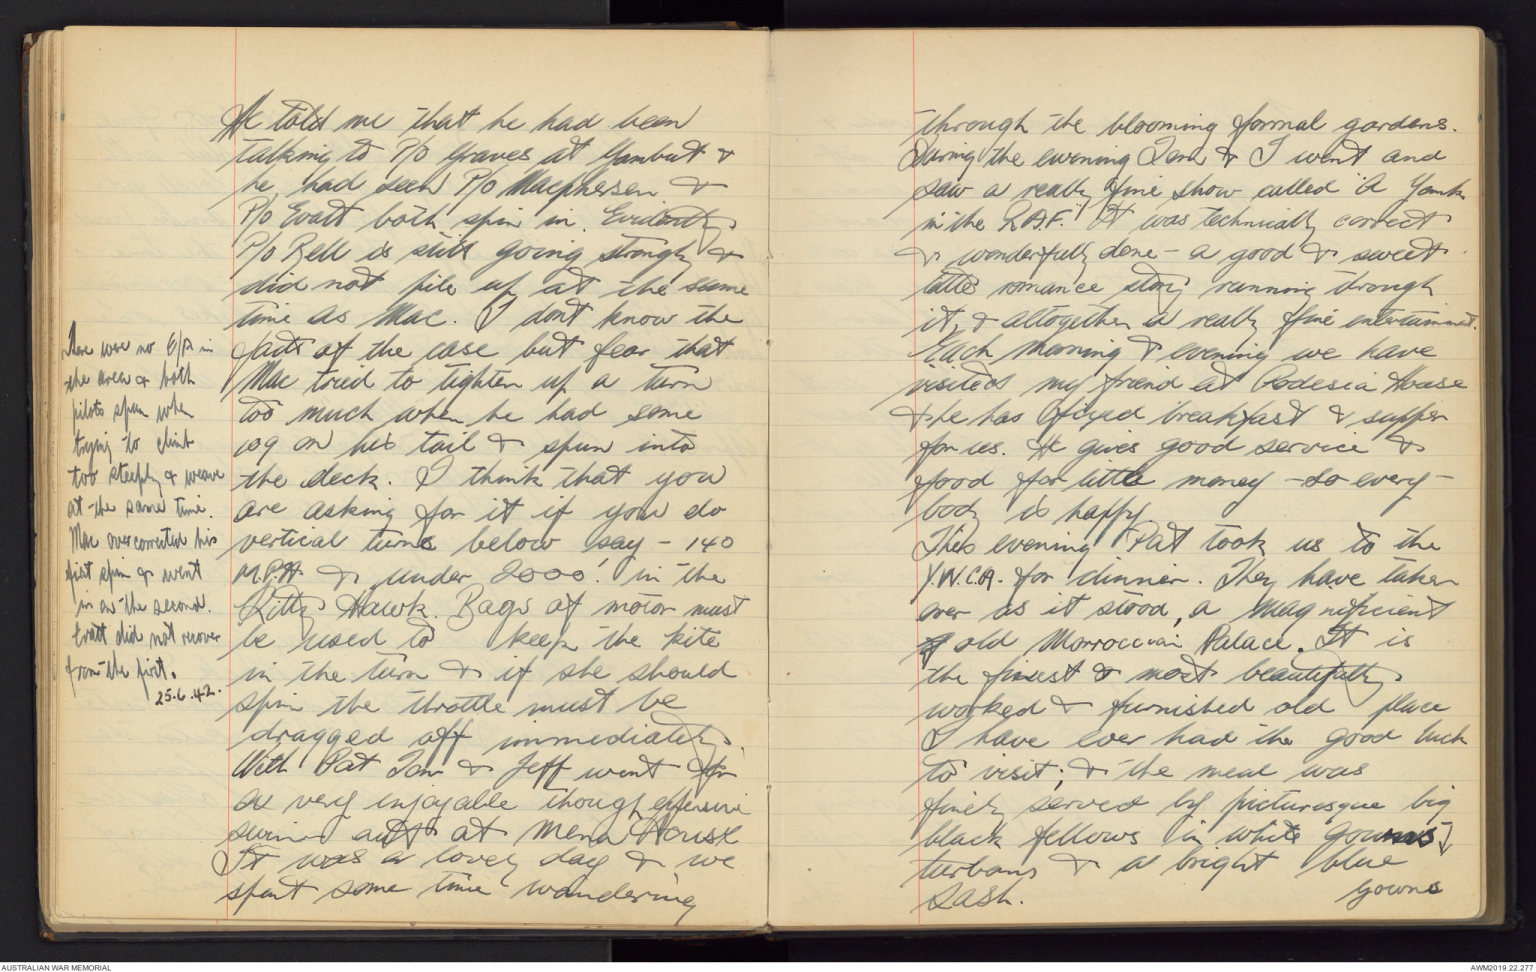 He told me that he had been
talking to P/o Graves at Gambut &
he had seen P/o Macpherson &
P/o Evatt both spin in. Evidently
P/o Bell is still going strongly &
did not pile up at the same
time as Mac. I don't know the
facts of the case but fear that
Mac tried to tighten up a turn
too much when he had some
109 on his tail & spun into
the deck. I think that you
are asking for it if you do
vertical turns below say - 140
M.P.H & under 2000' in the
Kitty Hawk. Bags of motor must
be used to keep the kite
in the turn & if she should
spin the throttle must be
dragged off immediately.
With Pat Ian & Jeff went for
a very enjoyable though
swim at Mena House
It was a lovely day & we
spent some time wandering
There were no E/A in
the area & both
pilots spun when
trying to climb
too steeply & weave
at the same time.
Mac overcorrected his
first spin & went
in on the second.
Evatt did not recover
from the first.
25.6.42.
through the blooming formal gardens.
During the evening Ian & I went and
saw a really fine show called "A Yank
in the R.A.F." It was technically correct
& wonderfully done - a good & sweet
little romance story running through
it, & altogether a really fine entertainment.
Each morning & evening we have
visited my friend at Rodesia House
& he has fixed breakfast & supper
for us. He gives good service &
food for little money - so every-
body is happy
This evening Pat took us to the
Y.W.C.A. for dinner. They have taken
over as it stood, a magnificient
old Morroccian Palace. It is
the finest & most beautifully
worked & furnished old place
I have ever had the good luck
to visit; & the meal was
finely served by picturesque big
black fellows in white gowns
turbans & a bright blue
sash. gowns
AUSTRALIAN WAR MEMORIAL
AWM2019.22.277